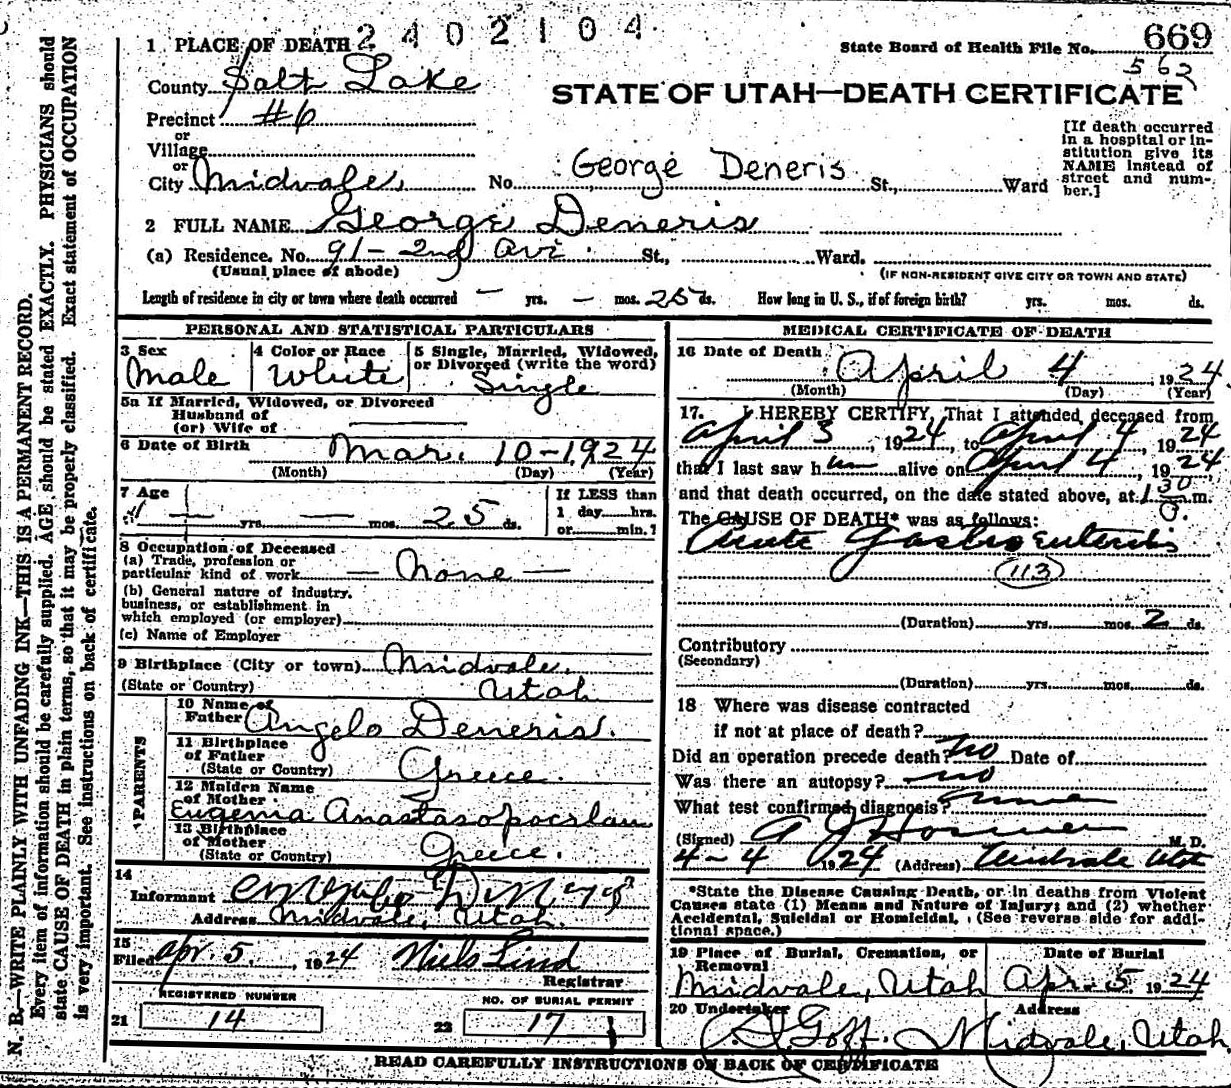 2402104
State Board of Health File No. 669
562
1 PLACE OF DEATH
County Salt Lake
STATE OF UTAH—DEATH CERTIFICATE
Precinct #6
or
Village
or
City Midvale, No. George Deneris St., Ward
[If death occurred
in a hospital or in-
stitution give its
NAME instead of
street and num-
ber.]
2 FULL NAME George Deneris
(a) Residence. No. 91-2nd Ave St., Ward.
(Usual place of abode)
(IF NON-RESIDENT GIVE CITY OR TOWN AND STATE)
Length of residence in city or town where death occurred — yrs. — mos. 25 ds. How long in U. S., if of foreign birth? yrs. mos. ds.
PERSONAL AND STATISTICAL PARTICULARS
3 Sex
Male
4 Color or Race
White
5 Single, Married, Widowed,
or Divorced (write the word)
Single
5a If Married, Widowed, or Divorced
Husband of
(or) Wife of
6 Date of Birth Mar. 10-1924
(Month) (Day) (Year)
7 Age
— yrs. — mos. 25 ds.
If LESS than
1 day hrs.
or min.?
8 Occupation of Deceased
(a) Trade, profession or
particular kind of work — None —
(b) General nature of industry,
business, or establishment in
which employed (or employer)
(c) Name of Employer
9 Birthplace (City or town) Midvale,
(State or Country) Utah
PARENTS
10 Name of
Father Angelo Deneris.
11 Birthplace
of Father
(State or Country) Greece.
12 Maiden Name
of Mother
Eugenia
13 Birthplace
of Mother
(State or Country) Greece.
14
Informant
Address Midvale, Utah
15
Filed Apr. 5, 1924 Niels Lind
Registrar
REGISTERED NUMBER
21 14
NO. OF BURIAL PERMIT
22 17
MEDICAL CERTIFICATE OF DEATH
16 Date of Death April 4 1924
(Month) (Day) (Year)
17. I HEREBY CERTIFY, That I attended deceased from
April 3, 1924, to April 4, 1924
that I last saw him alive on April 4, 1924
and that death occurred, on the date stated above, at 1 30 m.
The CAUSE OF DEATH* was as follows:
Acute Gastro Enteritis
113
(Duration) yrs. mos. 2 ds.
Contributory
(Secondary)
(Duration) yrs. mos. ds.
18 Where was disease contracted
if not at place of death?
Did an operation precede death? no Date of
Was there an autopsy? no
What test confirmed diagnosis?
(Signed) A J Hosmer M. D.
4-4 1924 (Address) Midvale Utah
*State the Disease Causing Death, or in deaths from Violent
Causes state (1) Means and Nature of Injury; and (2) whether
Accidental, Suicidal or Homicidal. (See reverse side for addi-
tional space.)
19 Place of Burial, Cremation, or
Removal
Midvale, Utah
Date of Burial
Apr. 5 1924
20 Undertaker
Goff.
Address
Midvale, Utah
READ CAREFULLY INSTRUCTIONS ON BACK OF CERTIFICATE
N. B.—WRITE PLAINLY WITH UNFADING INK—THIS IS A PERMANENT RECORD.
Every item of information should be carefully supplied. AGE should be stated EXACTLY. PHYSICIANS should
state CAUSE OF DEATH in plain terms, so that it may be properly classified. Exact statement of OCCUPATION
is very important. See instructions on back of certificate.